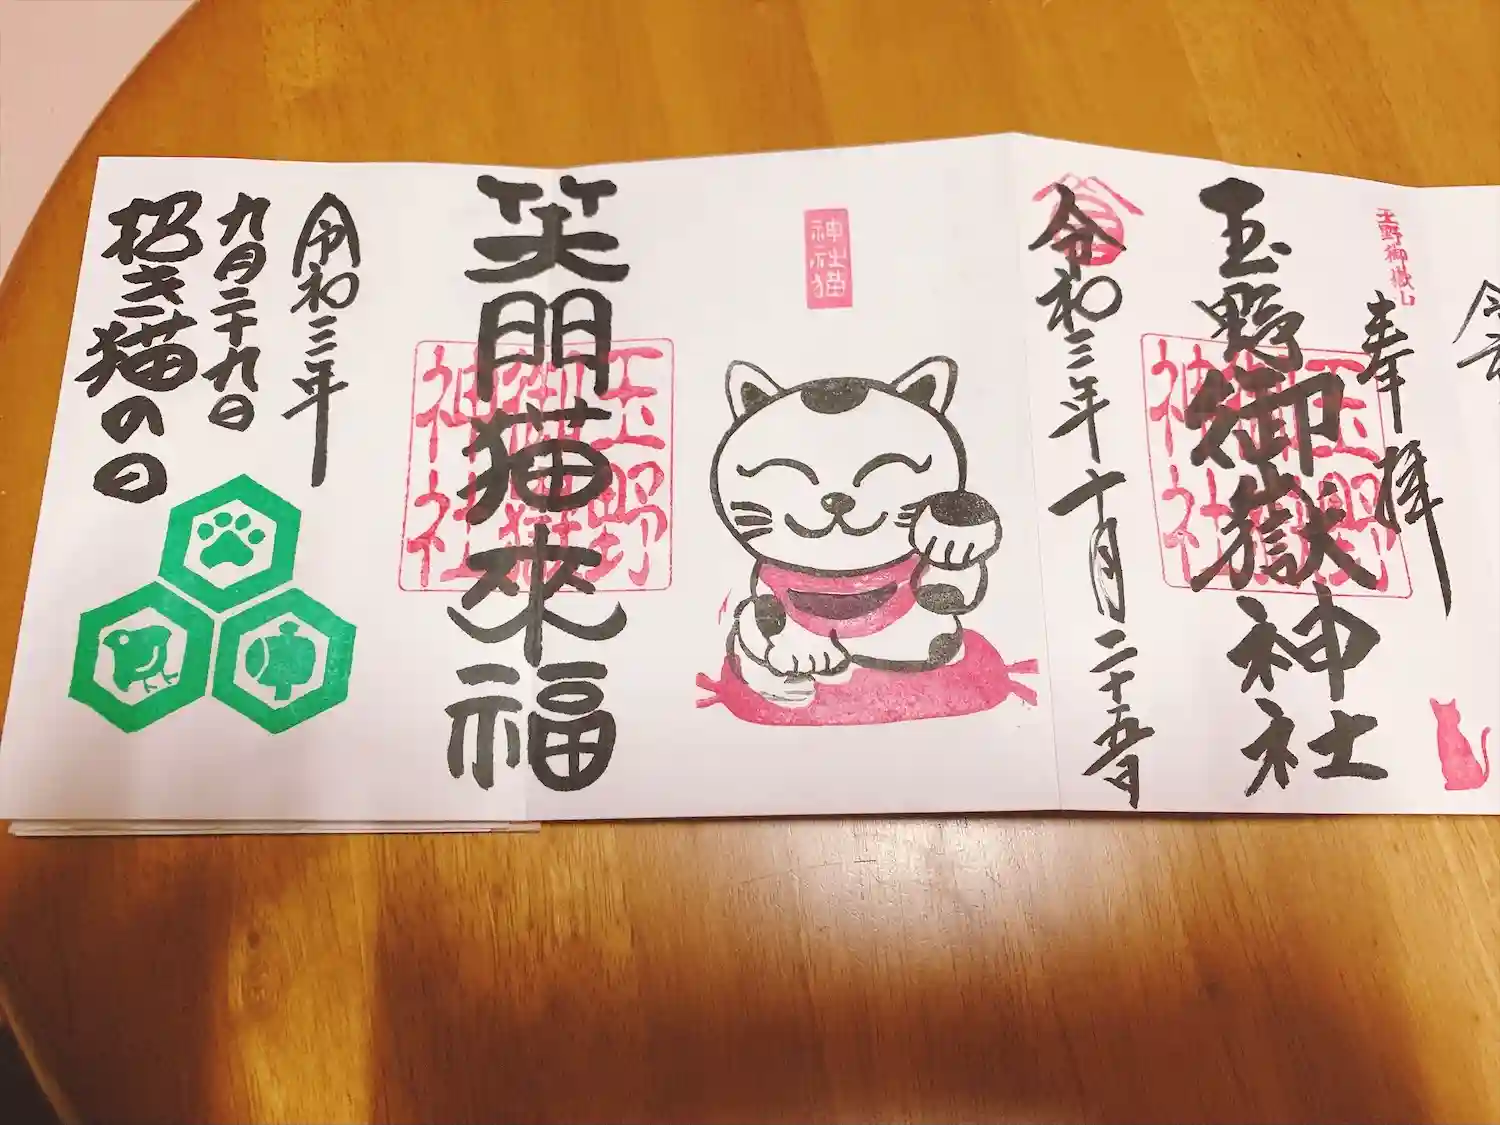 玉野御嶽山
奉拝
玉野御嶽神社
玉野
御嶽
神社
令和三年十月二十五日
神社猫
笑門猫来福
玉野
御嶽
神社
令和三年
九月二十九日
招き猫の日